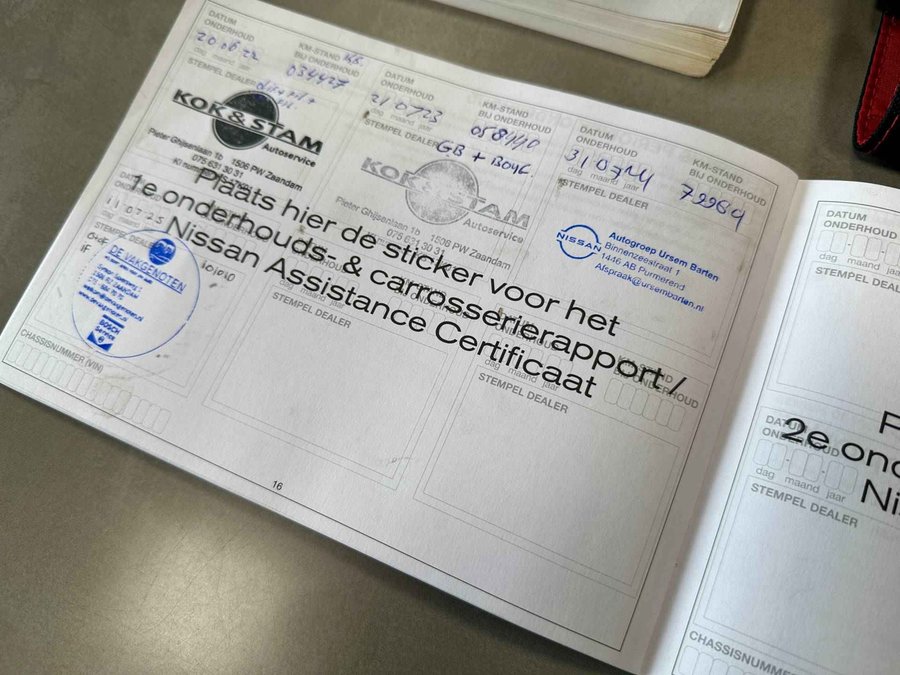 DATUM
ONDERHOUD
20 06 22
dag maand jaar
KM-STAND
BIJ ONDERHOUD
034427
STEMPEL DEALER
KOK & STAM
Autoservice
Pieter Ghijsenlaan 1b 1506 PW Zaandam
075 631 30 31
DATUM
ONDERHOUD
21 07 23
dag maand jaar
KM-STAND
BIJ ONDERHOUD
058490
STEMPEL DEALER
GB +
KOK & STAM
Autoservice
Pieter Ghijsenlaan 1b 1506 PW Zaandam
075 631 30 31
DATUM
ONDERHOUD
31 07 24
dag maand jaar
KM-STAND
BIJ ONDERHOUD
79969
STEMPEL DEALER
NISSAN
Autogroep Ursem Barten
Binnenzeestraat 1
1446 AB Purmerend
Afspraak@ursembarten.nl
Plaats hier de sticker voor het
1e onderhouds- & carrosserierapport /
Nissan Assistance Certificaat
DATUM
ONDERHOUD
11 07 25
STEMPEL DEALER
101010
DE VAKGENOTEN
BOSCH
Service
STEMPEL DEALER
KM-STAND
BIJ ONDERHOUD
dag maand jaar
STEMPEL DEALER
CHASSISNUMMER (VIN)
16
DATUM
ONDERHOUD
dag maand jaar
STEMPEL DEALER
DATUM
ONDERHOUD
2e
dag maand jaar
STEMPEL DEALER